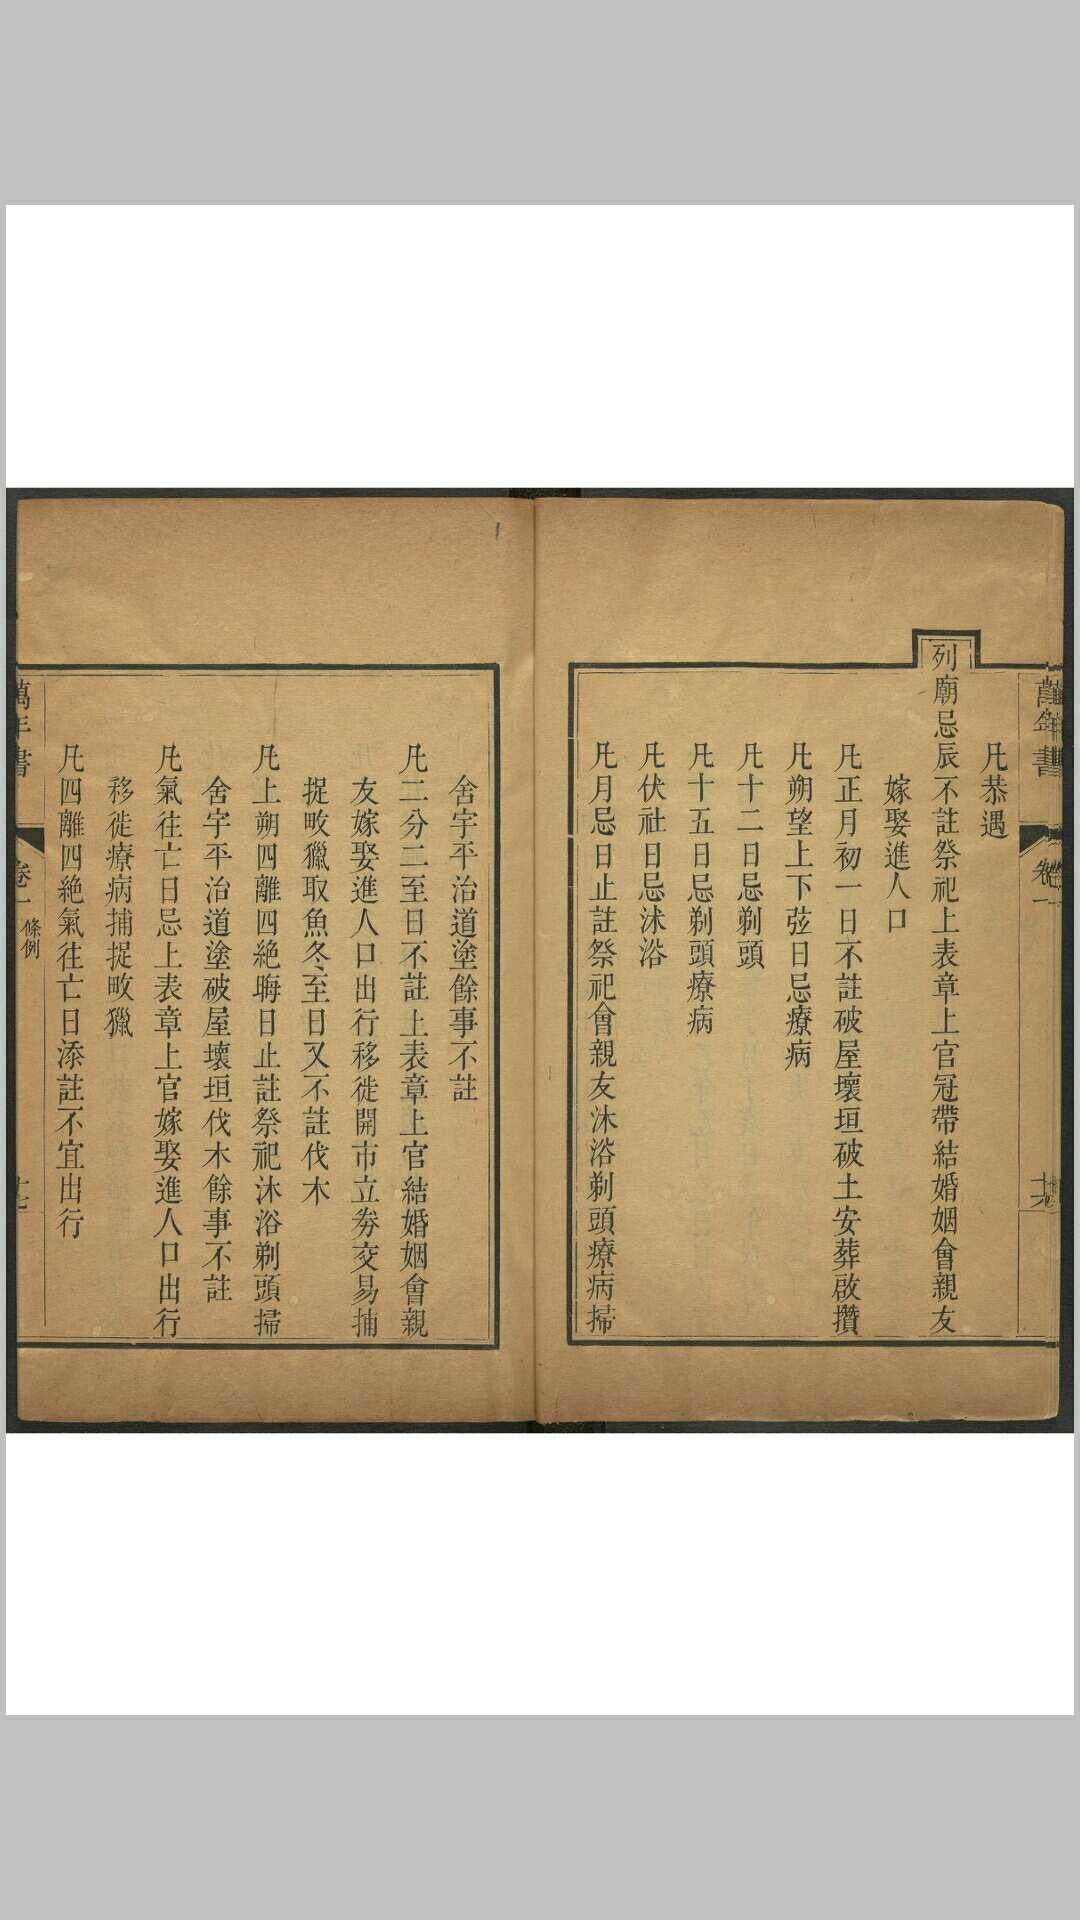 萬年書
卷一
凡恭遇
列廟忌辰不註祭祀上表章上官冠帶結婚姻會親友
嫁娶進人口
凡正月初一日不註破屋壞垣破土安葬啟攢
凡朔望上下弦日忌療病
凡十二日忌剃頭
凡十五日忌剃頭療病
凡伏社日忌沐浴
凡月忌日止註祭祀會親友沐浴剃頭療病掃
舍宇平治道塗餘事不註
凡二分二至日不註上表章上官結婚姻會親
友嫁娶進人口出行移徙開市立劵交易捕
捉畋獵取魚冬至日又不註伐木
凡上朔四離四絶晦日止註祭祀沐浴剃頭掃
舍宇平治道塗破屋壞垣伐木餘事不註
凡氣往亡日忌上表章上官嫁娶進人口出行
移徙療病捕捉畋獵
凡四離四絶氣往亡日添註不宜出行
萬年書
卷一
條例
十七